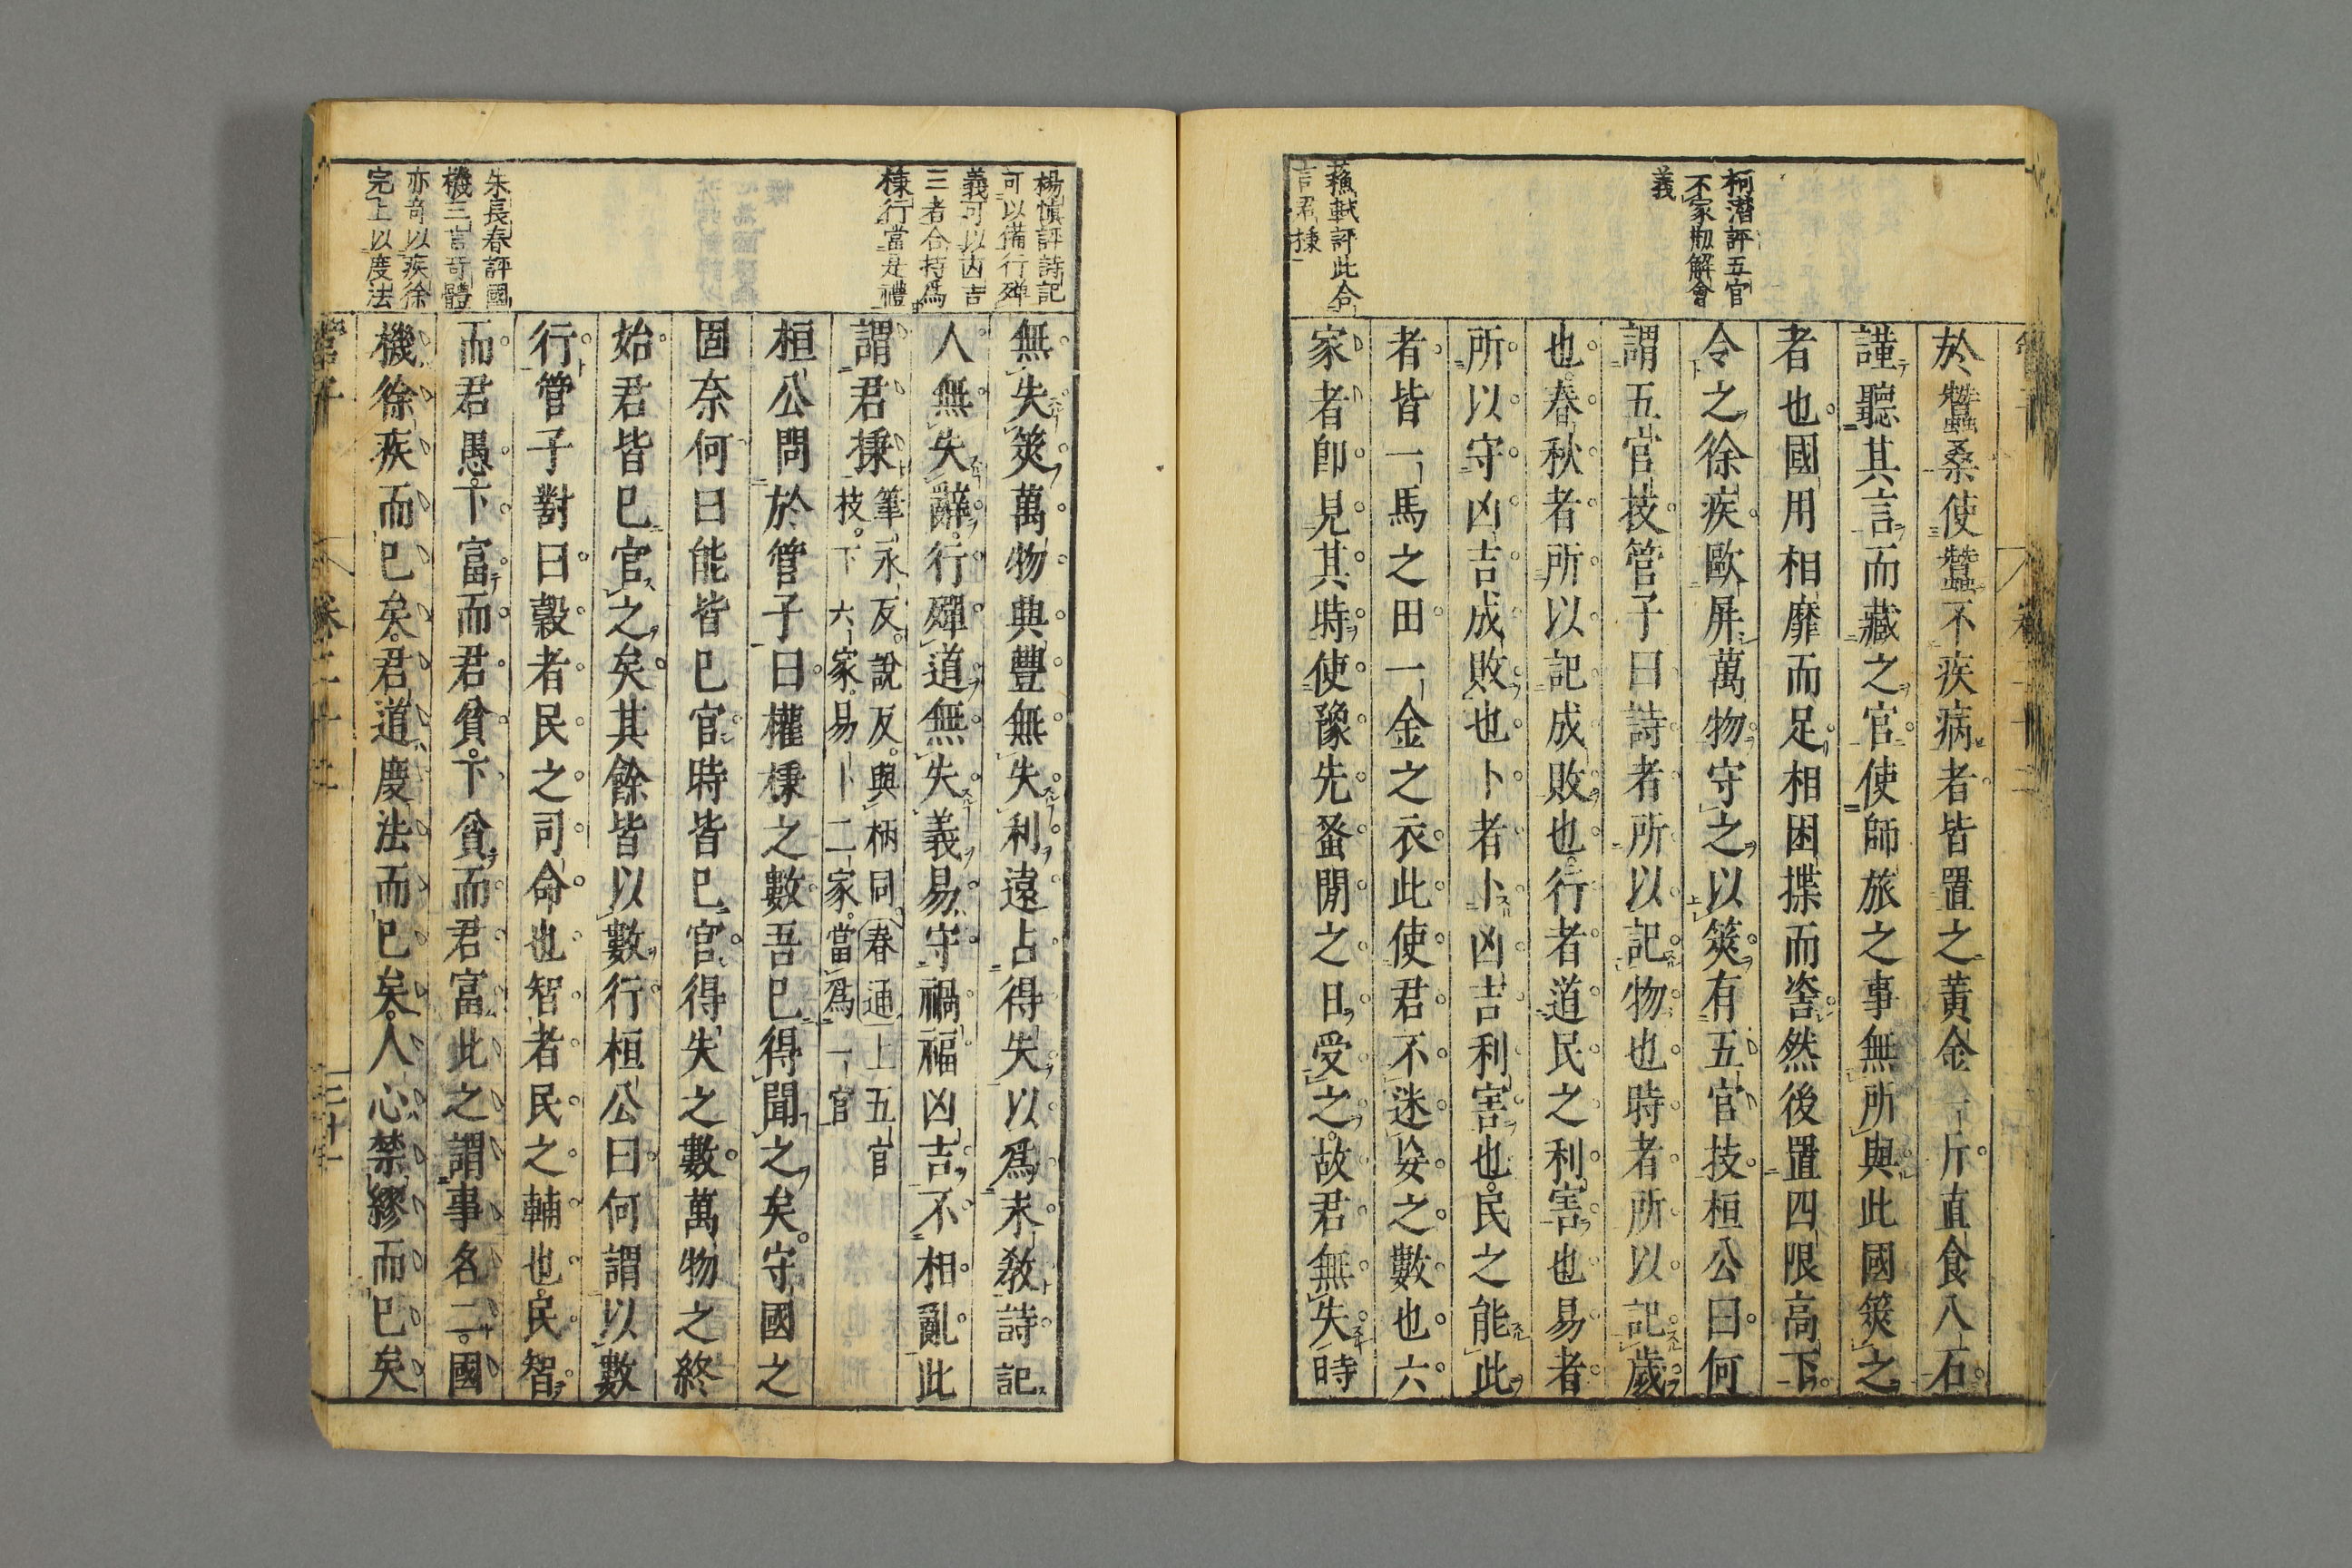 柯潛評五官
不家刱解會
義
蘓軾評此合
言君揀
於蠶桑使蠶不疾病者皆置之黃金一斤直食八石
謹聽其言而藏之官使師旅之事無所與此國筴之
者也國用相靡而足相困揲而𠹁然後置四限高下
令之徐疾歐屏萬物守之以筴有五官技桓公曰何
謂五官技管子曰詩者所以記物也時者所以記歲
也春秋者所以記成敗也行者道民之利害也易者
所以守凶吉成敗也卜者卜凶吉利害也民之能此
者皆一馬之田一金之衣此使君不迷妄之數也六
家者卽見其時使豫先蚤閒之日受之故君無失時
楊愼評詩記
可以備行殫
義可以凶吉
三者合持爲
棅行當是禮
無失筴萬物典豐無失利遠占得失以爲末教詩記
人無失辭行殫道無失義易守禍福凶吉不相亂此
謂君棅筆永反說反與柄同春通上五官
技下六家易卜二家當爲一官
桓公問於管子曰權棅之數吾已得聞之矣守國之
固奈何曰能皆已官時皆已官得失之數萬物之終
始君皆已官之矣其餘皆以數行桓公曰何謂以數
行管子對曰穀者民之司命也智者民之輔也民智
而君愚下富而君貧下貧而君富此之謂事名二國
機徐疾而已矣君道度法而已矣人心禁繆而已矣
朱長春評國
機三言奇體
亦奇以疾徐
完上以度法
管子
卷二十二
三十一